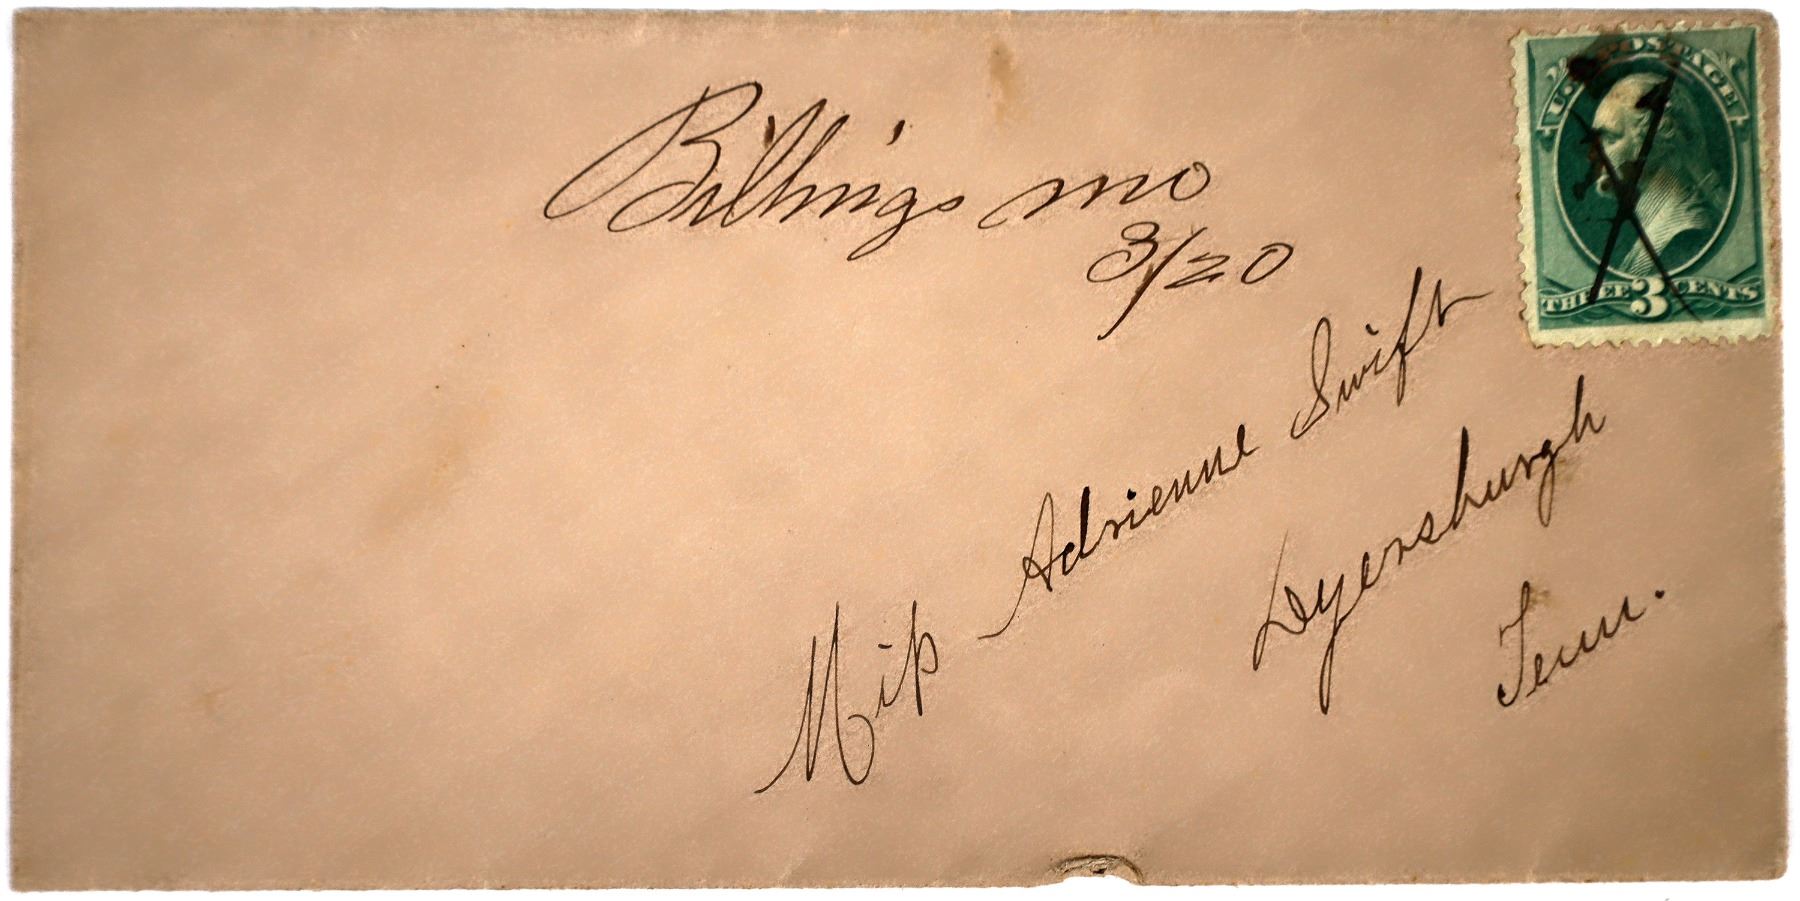 Billings Mo
3/20
U.S. POSTAGE
THREE 3 CENTS
Miss Adrienne Swift
Dyersburgh
Tenn.